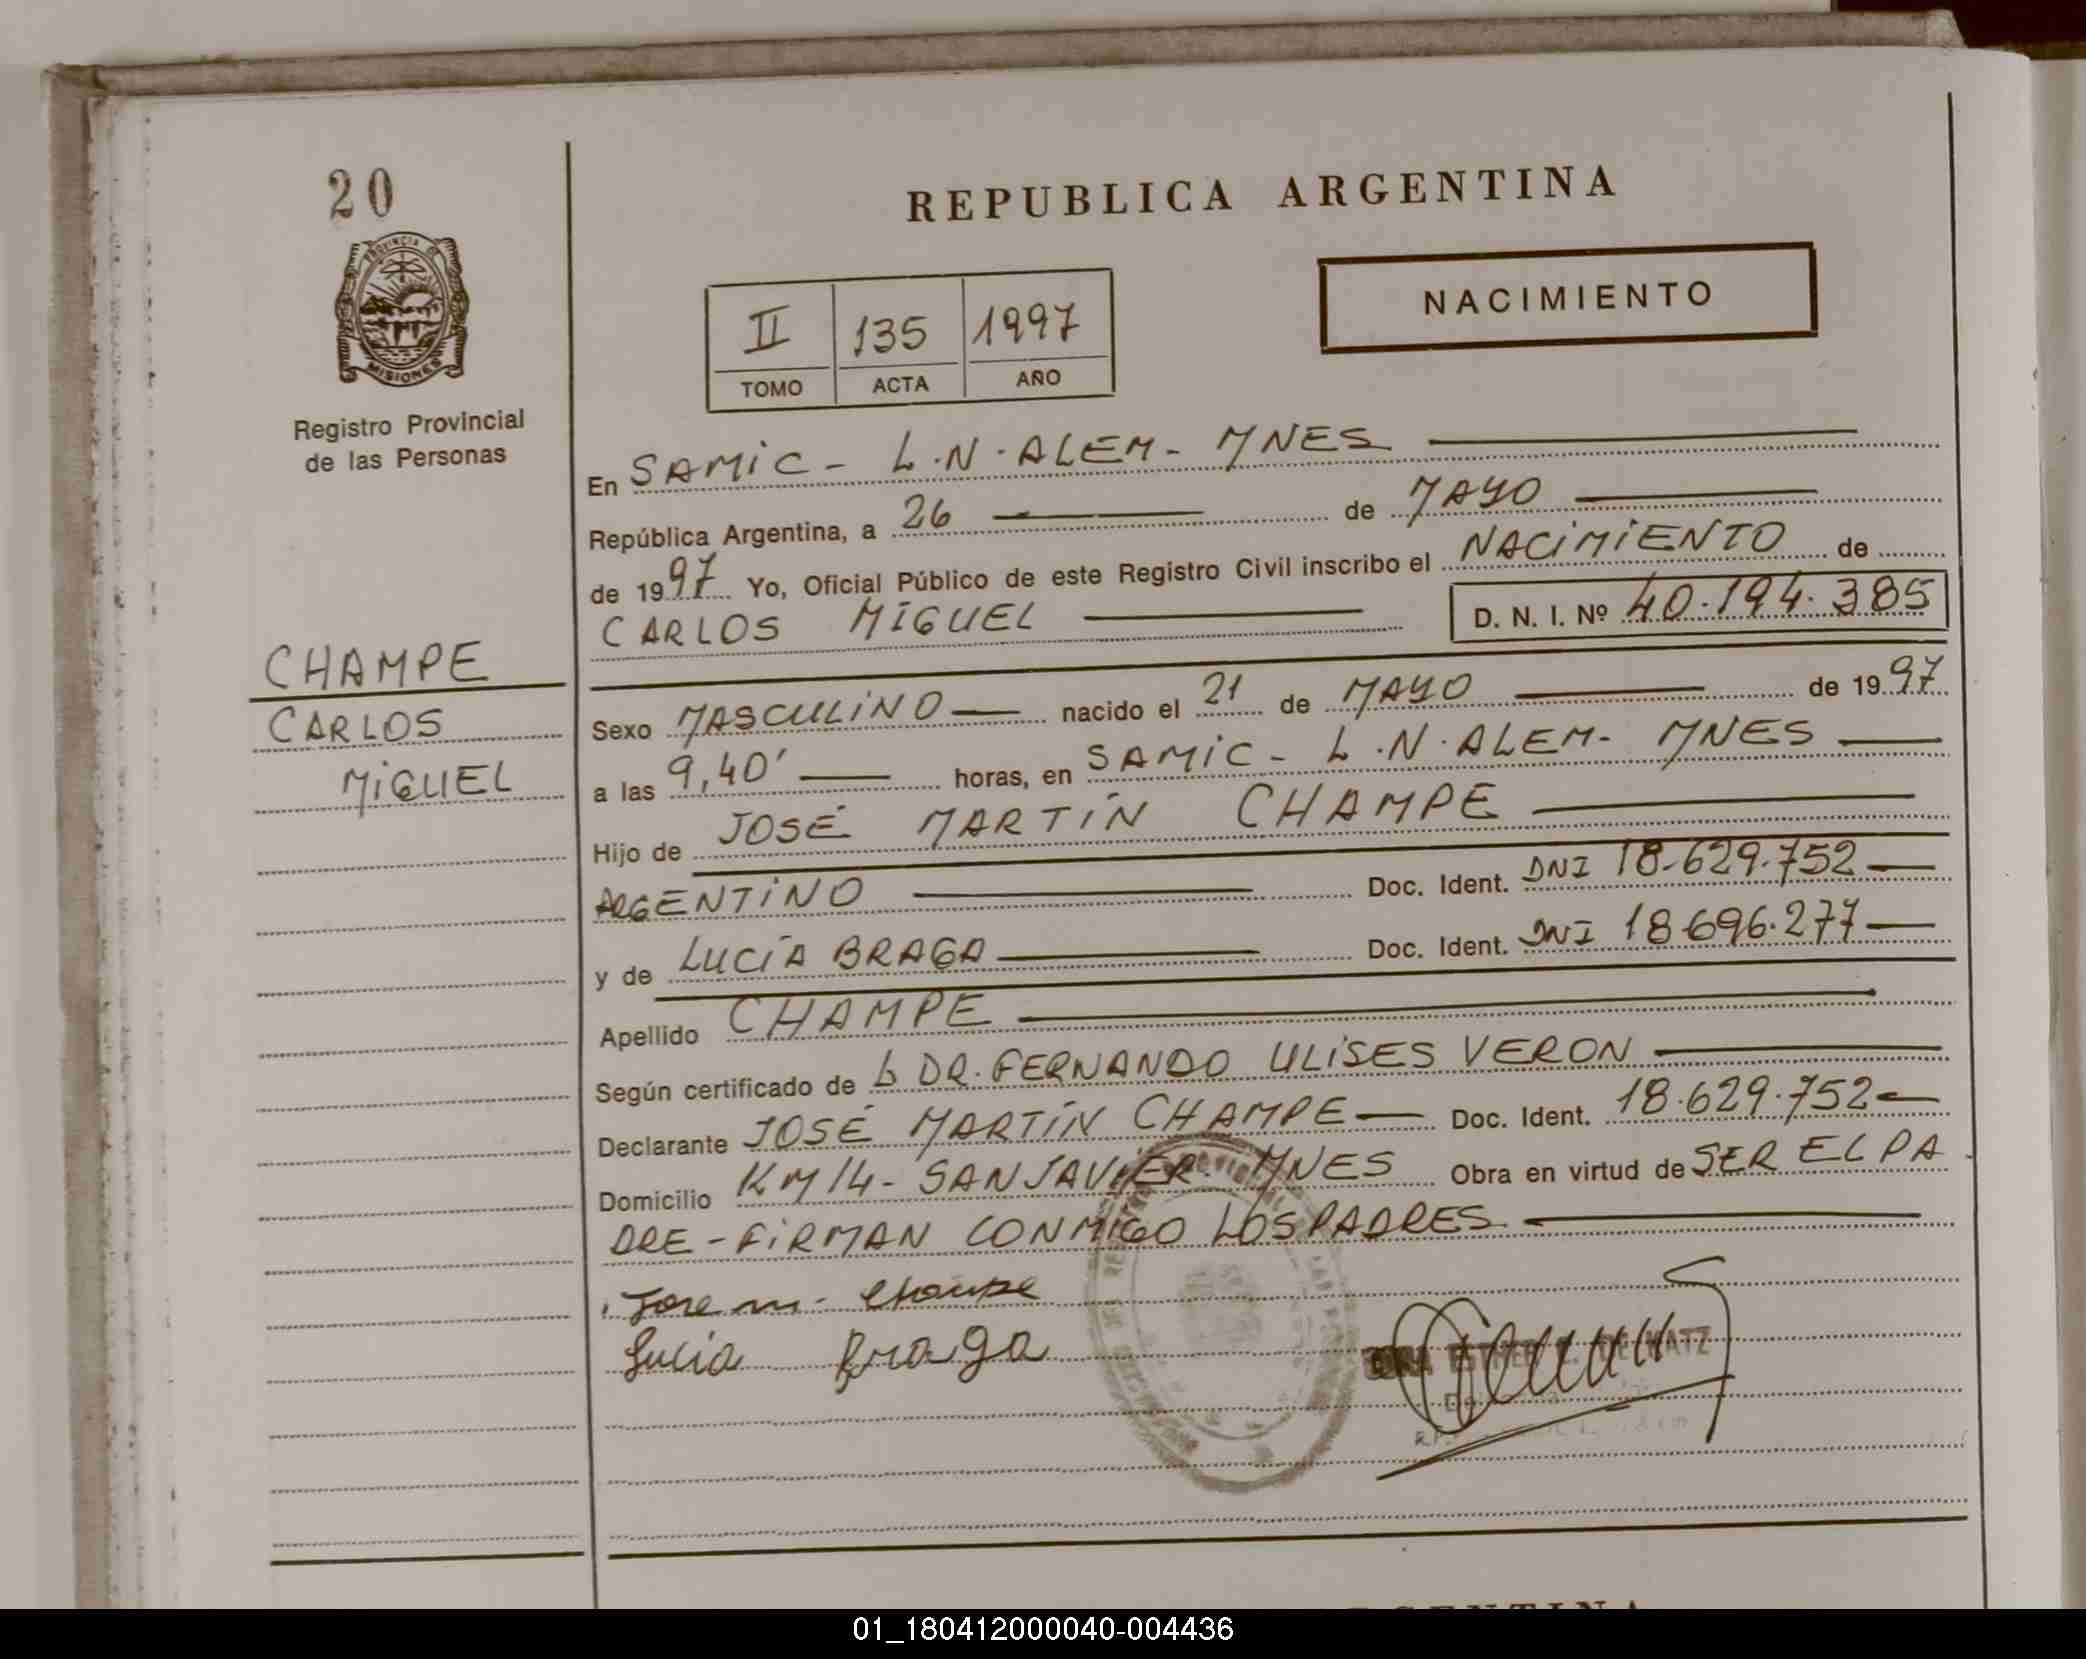 20
REPUBLICA ARGENTINA
PROVINCIA DE
MISIONES
NACIMIENTO
II 135 1997
TOMO ACTA AÑO
Registro Provincial
de las Personas
En SAMIC - L.N.ALEM - MNES
República Argentina, a 26 de MAYO
de 1997 Yo, Oficial Público de este Registro Civil inscribo el NACIMIENTO de
CARLOS MIGUEL D. N. I. Nº 40.194.385
CHAMPE
CARLOS
MIGUEL
Sexo MASCULINO nacido el 21 de MAYO de 1997
a las 9,40' horas, en SAMIC - L.N.ALEM - MNES
Hijo de JOSÉ MARTÍN CHAMPE
ARGENTINO Doc. Ident. DNI 18.629.752
y de LUCÍA BRAGA Doc. Ident. DNI 18.696.277
Apellido CHAMPE
Según certificado de DR. FERNANDO ULISES VERON
Declarante JOSÉ MARTÍN CHAMPE Doc. Ident. 18.629.752
Domicilio KM 14 - SAN JAVIER - MNES Obra en virtud de SER EL PA
DRE - FIRMAN CONMIGO LOS PADRES
Jose m. Champe
Lucia Braga
01_180412000040-004436